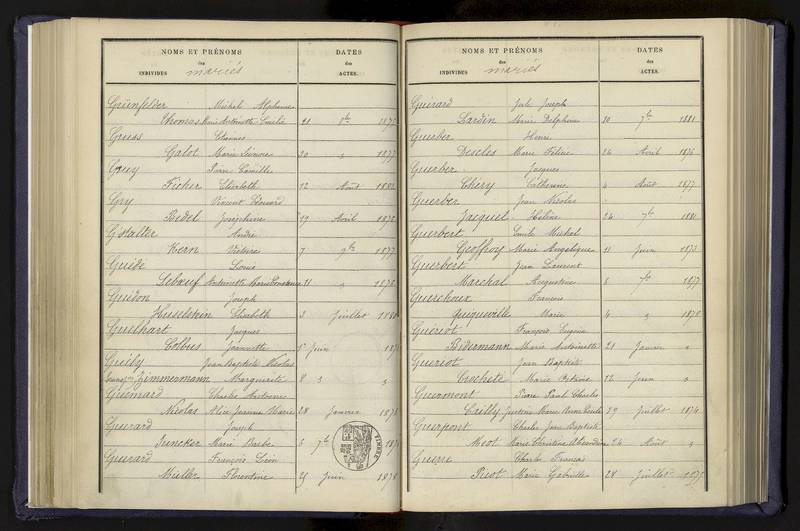 NOMS ET PRÉNOMS DATES
des des
INDIVIDUS mariés ACTES.
Grünfelder Michel Alphonse
Thomas Marie Antoinette Emilie 21 8bre
Gruss
Galot Marie 20
Gruy Camille
Ficker Elisabeth 12 Août 1882
Gry Vincent Léonard
Bedel Joséphine 29 Avril
Gstalter André
Kern Victoire 7 9bre 1877
Guidé Louis
Lebœuf Antoinette Marie Constance 21
Guidon Joseph
Huselstein Elisabeth 3 Juillet
Guilhart Jacques
Colbus Jeannette Juin
Guilly Jean Baptiste Nicolas
Zimmermann Marguerite 8
Guimard Charles Antoine
Nicolas Alice Jeanne Marie 28 Janvier
Guirard Joseph
Juncker Marie Barbe 7bre
Guirard François Léon
Müller Florentine 25 Juin 1878
NOMS ET PRÉNOMS DATES
des des
INDIVIDUS mariés ACTES.
Guérard Jules Joseph
Lardin Marie Delphine 10 7bre 1881
Guerber Henri
Descles Marie 24 Avril 1876
Guerber Jacques
Chéry Catherine 4 Août 1877
Guerber Jean Nicolas
Jacquel Hélène 24 7bre 1881
Guerbert Emile Michel
Geoffroy Marie Angélique 11 Juin 1873
Guerbert Jean Laurent
Marchal Augustine 8 1877
Guerchoux François
Guiqueville Marie 4
Guériot François Eugène
Bidermann Marie Antoinette 21 Janvier
Guériot Jean Baptiste
Crochete Marie 12 Juin
Guermont Pierre Paul Charles
Cailly Marie 29 Juillet 1874
Guerpont Charles Jean Baptiste
Meot Marie Christine 24 Août
Guerre Charles François
Picot Marie Gabrielle 28 Juillet 1875